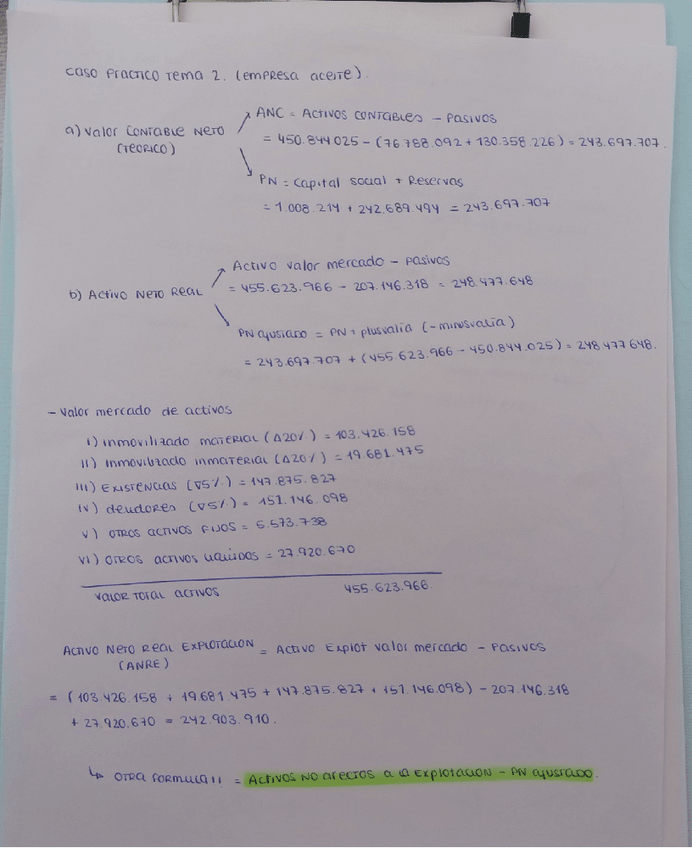 CASO PRACTICO TEMA 2. (EMPRESA ACEITE).
a) VALOR CONTABLE NETO (TEORICO)
ANC = ACTIVOS CONTABLES - PASIVOS
= 450.844.025 - (76.788.092 + 130.358.226) = 243.697.707.
PN = CAPITAL SOCIAL + RESERVAS
= 1.008.214 + 242.689.494 = 243.697.707
b) ACTIVO NETO REAL
ACTIVO VALOR MERCADO - PASIVOS
= 455.623.966 - 207.146.318 = 248.477.648
PN AJUSTADO = PN + PLUSVALIA (-MINUSVALIA)
= 243.697.707 + (455.623.966 - 450.844.025) = 248.477.648.
- VALOR MERCADO DE ACTIVOS
I) INMOVILIZADO MATERIAL (Δ20%) = 103.426.158
II) INMOVILIZADO INMATERIAL (Δ20%) = 19.681.475
III) EXISTENCIAS (∇5%) = 147.875.827
IV) DEUDORES (∇5%) = 151.146.098
V) OTROS ACTIVOS FIJOS = 5.573.738
VI) OTROS ACTIVOS LIQUIDOS = 27.920.670
VALOR TOTAL ACTIVOS 455.623.966
ACTIVO NETO REAL EXPLOTACION (ANRE) = ACTIVO EXPLOT VALOR MERCADO - PASIVOS
= (103.426.158 + 19.681.475 + 147.875.827 + 151.146.098) - 207.146.318
+ 27.920.670 = 242.903.910.
↳ OTRA FORMULA!! = ACTIVOS NO AFECTOS A LA EXPLOTACION - PN AJUSTADO.